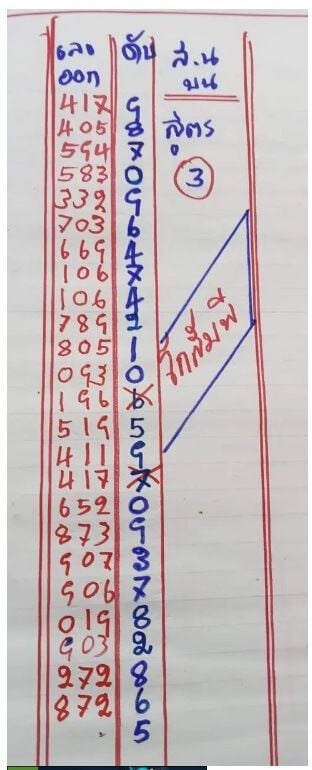 เลข ดับ ส.น
ออก บน
417 9
405 8 สูตร
594 7
583 0 3
332 9
703 6
669 4
106 7
106 4
789 2
805 1 โกสัมพี
093 0
196 6
519 5
411 9
417 7
652 0
873 9
907 3
906 7
019 8
903 2
272 8
872 6
5